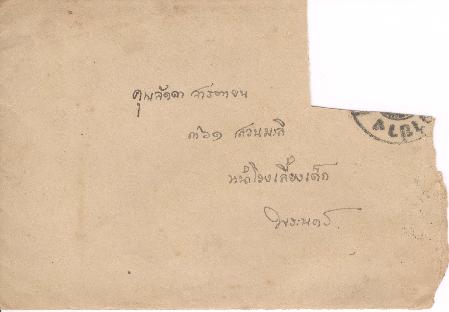 คุณลัดดา สารตายน
๓๖๑ สวนมะลิ
หน้าโรงเลี้ยงเด็ก
พระนคร